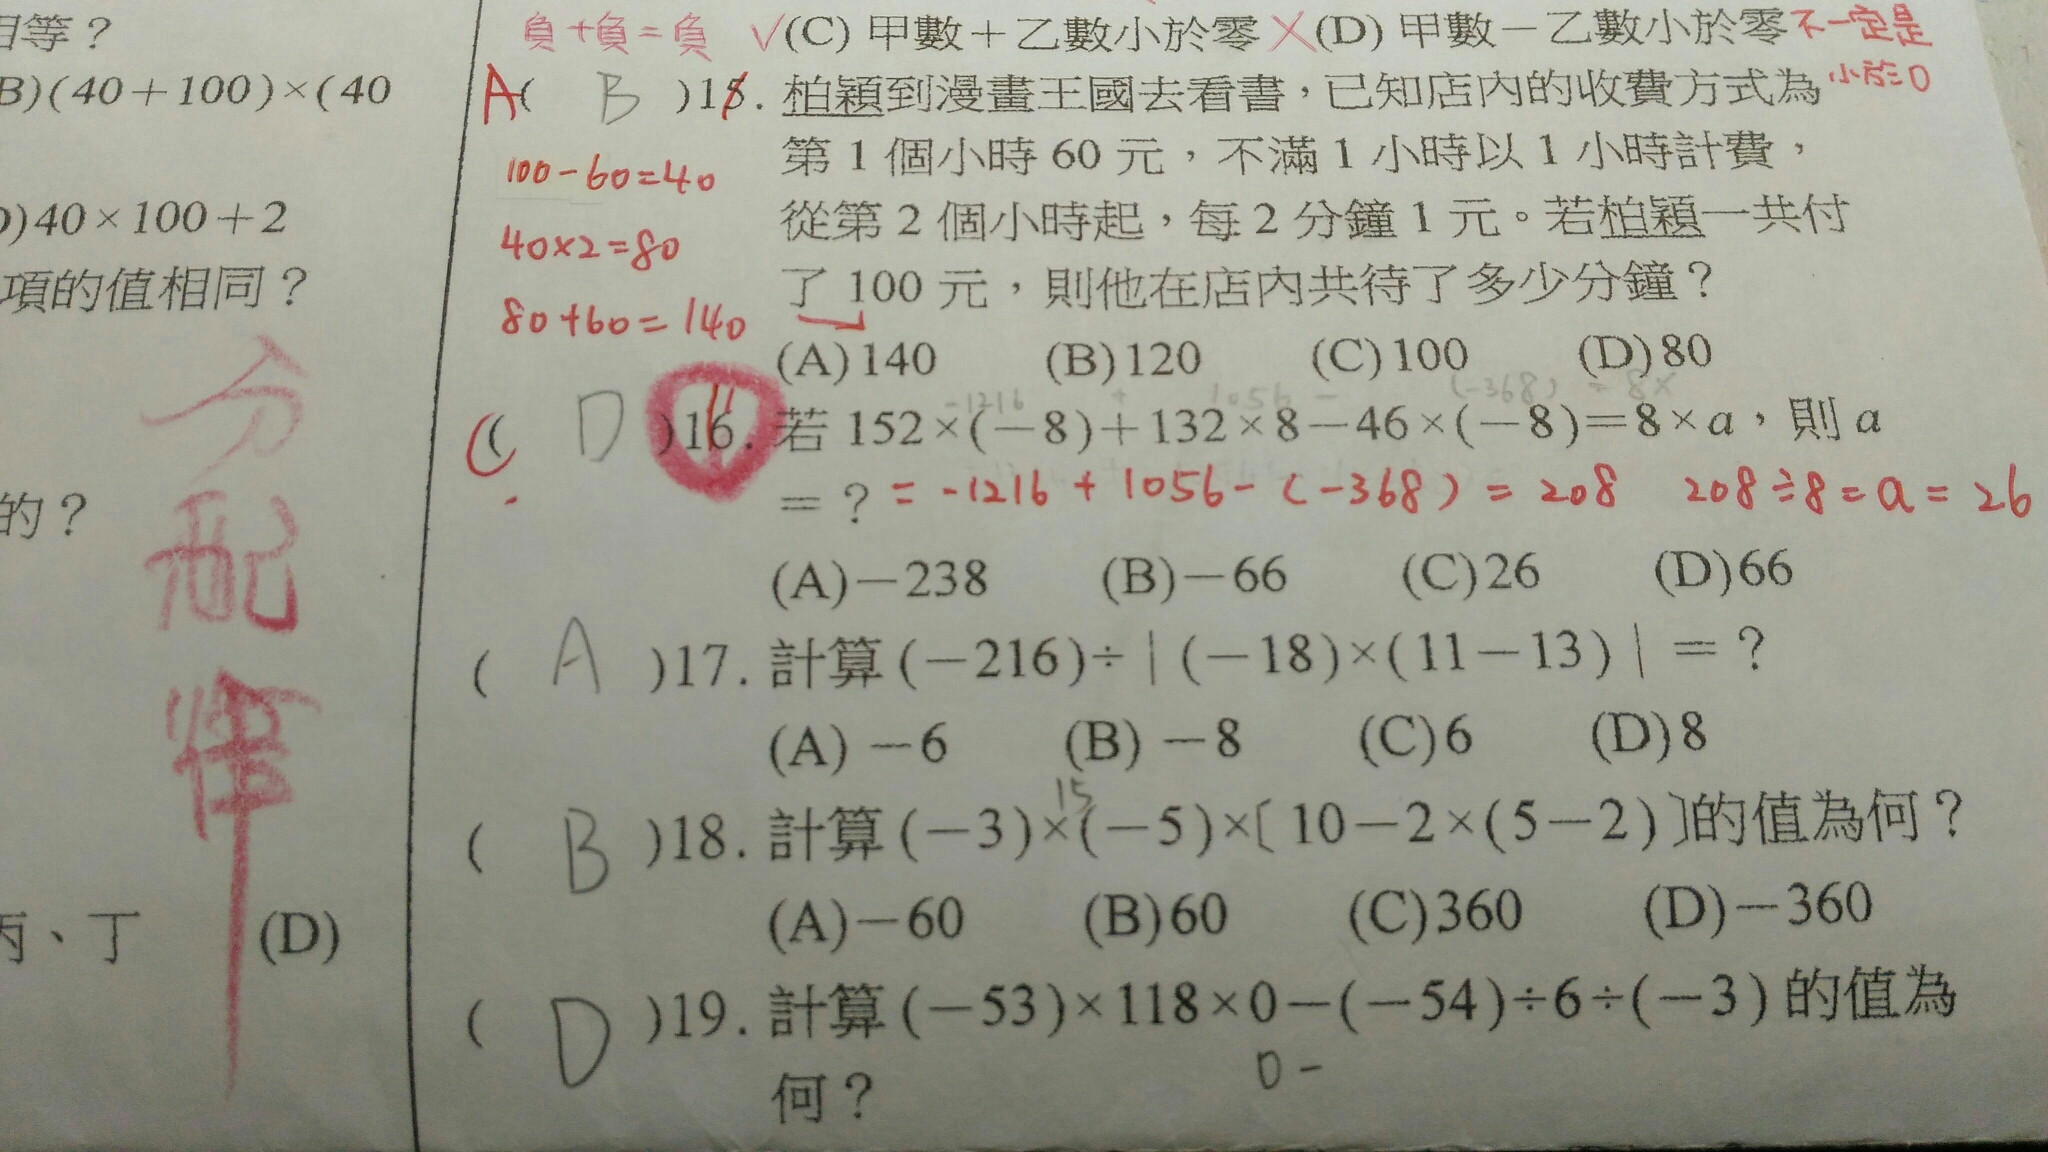 相等？
B)(40＋100)×(40
D)40×100＋2
項的值相同？
分配律
的？
丙、丁 (D)
負+負=負 ✓(C) 甲數＋乙數小於零 ✕(D) 甲數－乙數小於零 不一定是
小於0
A( B )15. 柏穎到漫畫王國去看書，已知店內的收費方式為
第 1 個小時 60 元，不滿 1 小時以 1 小時計費，
從第 2 個小時起，每 2 分鐘 1 元。若柏穎一共付
了 100 元，則他在店內共待了多少分鐘？
100-60=40
40×2=80
80+60=140
(A)140 (B)120 (C)100 (D)80
-1216 + 1056 - (-368) = 8×
C( D )16. 若 152×(－8)＋132×8－46×(－8)＝8×a，則 a
＝？ = -1216 + 1056 - (-368) = 208 208÷8=a=26
(A)－238 (B)－66 (C)26 (D)66
( A )17. 計算 (－216)÷｜(－18)×(11－13)｜＝？
(A) －6 (B) －8 (C)6 (D)8
15
( B )18. 計算 (－3)×(－5)×〔10－2×(5－2)〕的值為何？
(A)－60 (B)60 (C)360 (D)－360
( D )19. 計算 (－53)×118×0－(－54)÷6÷(－3) 的值為
何？
0 -